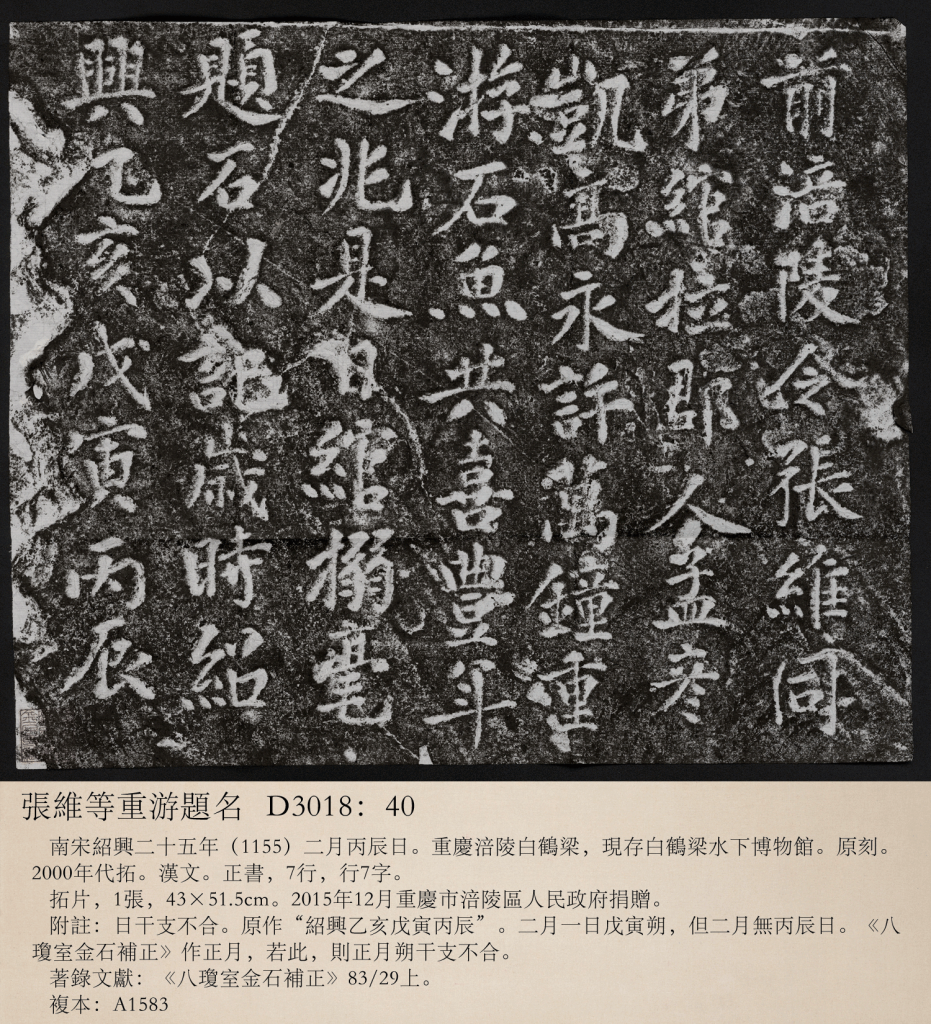 前涪陵令張維同
弟綰拉郡人孟彦
凱高永許萬鐘重
游石魚共喜豐年
之兆是日綰搦毫
題石以記歲時紹
興乙亥戊寅丙辰
張維等重游題名 D3018：40
南宋紹興二十五年（1155）二月丙辰日。重慶涪陵白鶴梁，現存白鶴梁水下博物館。原刻。
2000年代拓。漢文。正書，7行，行7字。
拓片，1張，43×51.5cm。2015年12月重慶市涪陵區人民政府捐贈。
附註：日干支不合。原作“紹興乙亥戊寅丙辰”。二月一日戊寅朔，但二月無丙辰日。《八
瓊室金石補正》作正月，若此，則正月朔干支不合。
著錄文獻：《八瓊室金石補正》83/29上。
複本：A1583